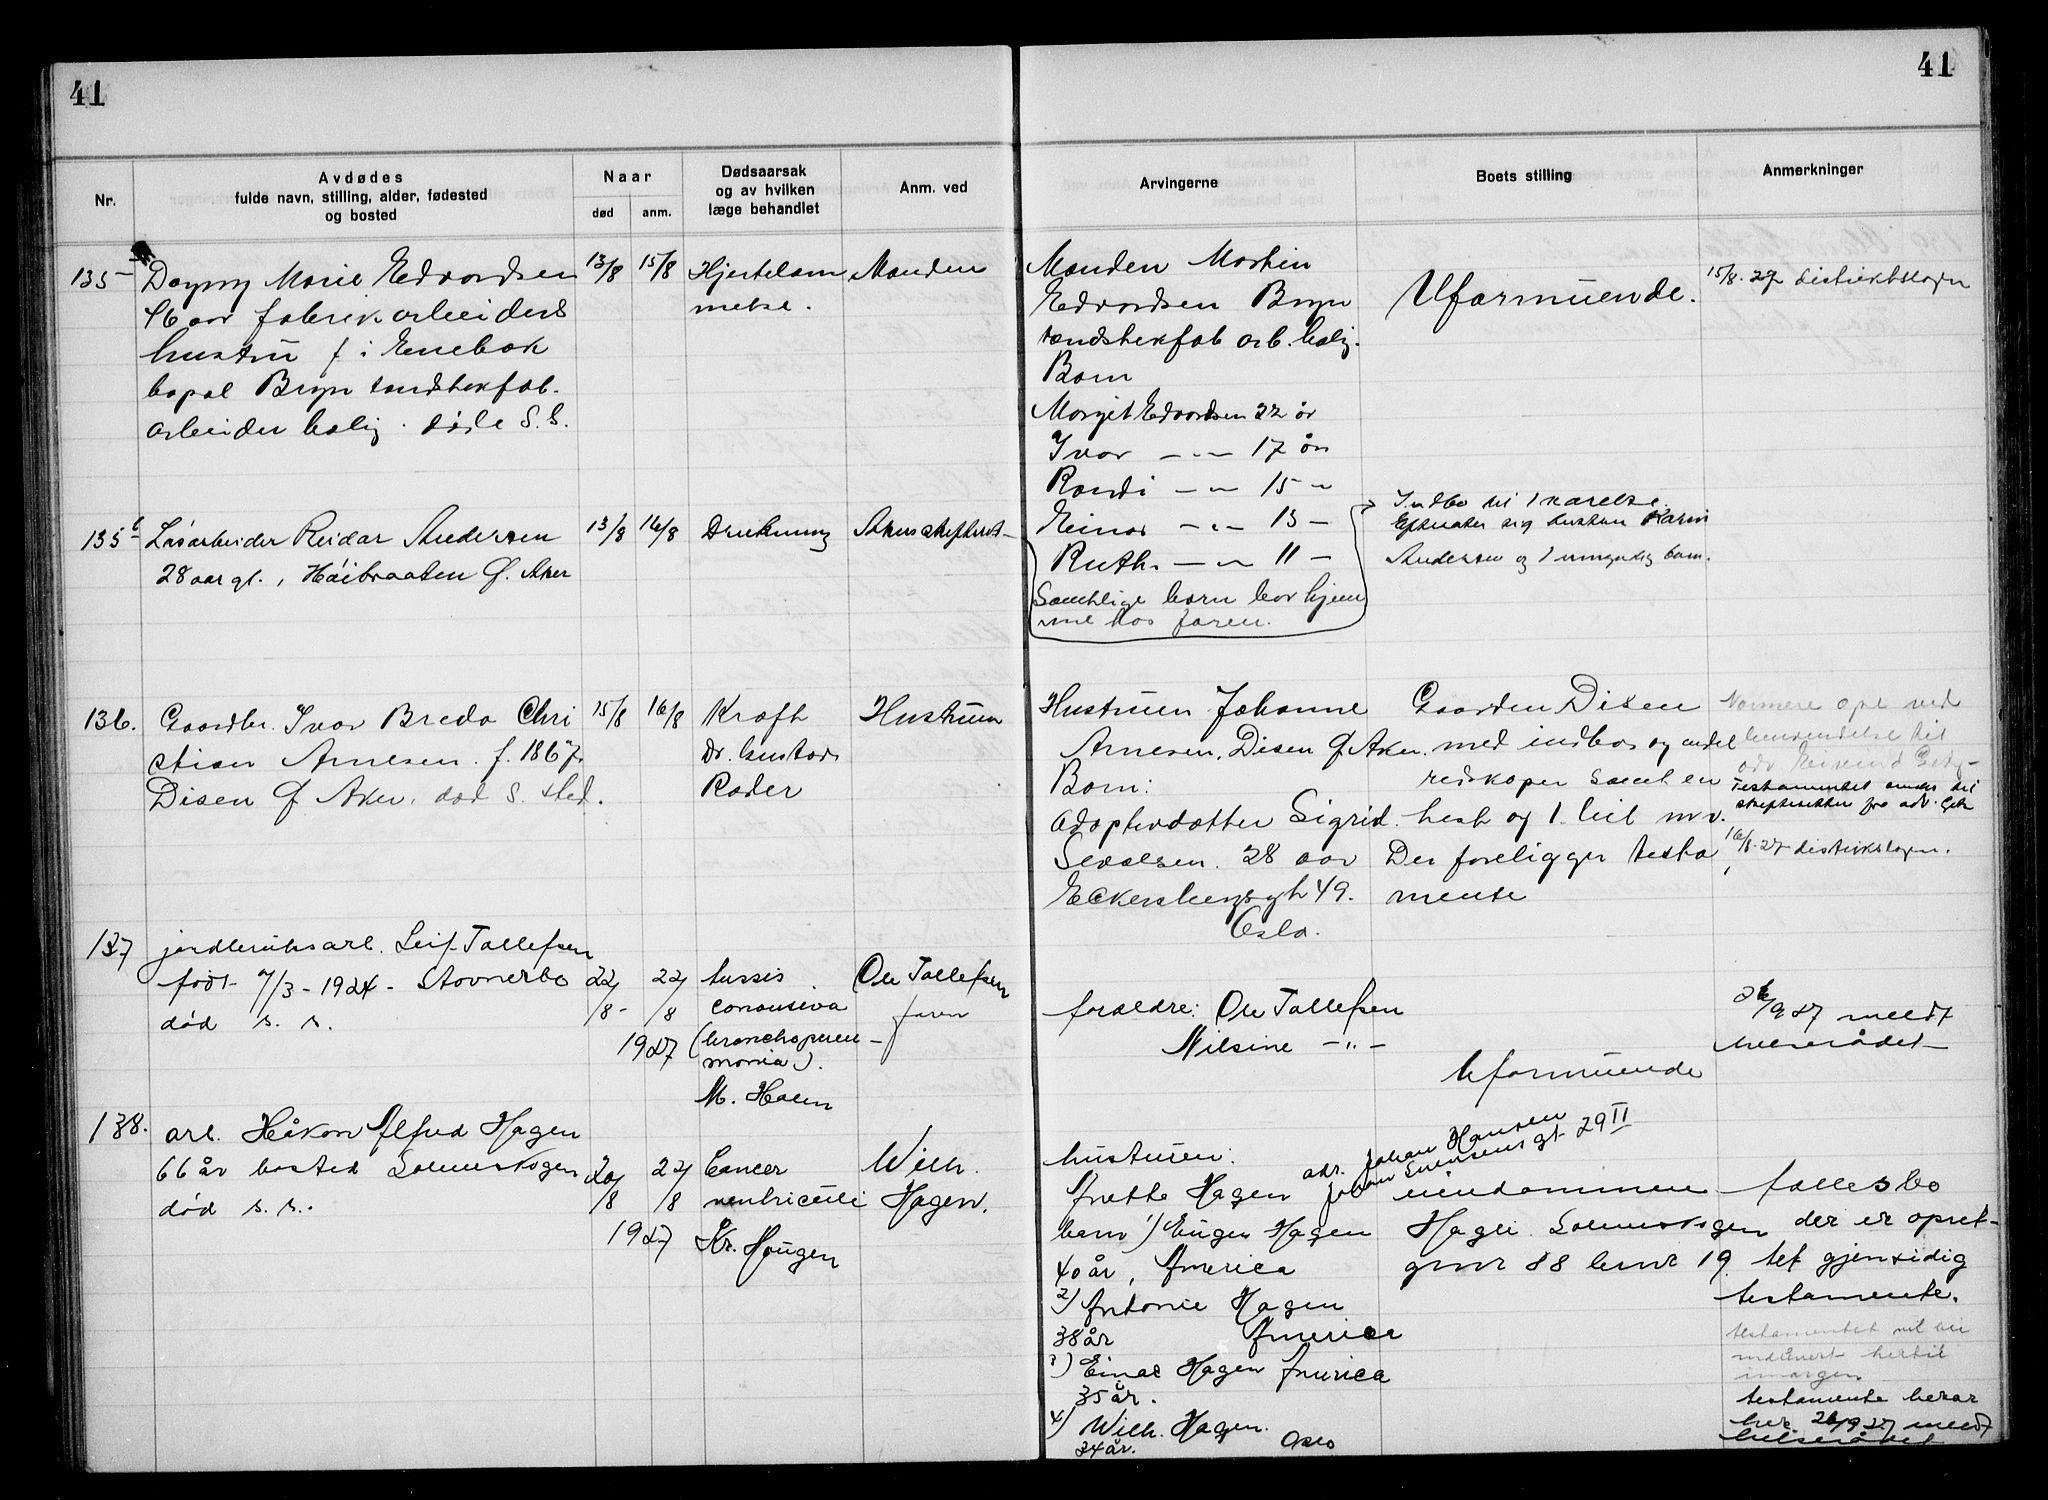 41
41
Nr.
Avdødes
fulde navn, stilling, alder, fødested
og bosted
Naar
død
anm.
Dødsaarsak
og av hvilken
læge behandlet
Anm. ved
Arvingerne
Boets stilling
Anmerkninger
135
Dagny Marie Edvardsen
46 aar fabrikarbeiders
hustru f i Enebak
bopæl Bryn tændstikfab.
arbeider bolig. døde S. S.
13/8
15/8
Hjertelam
melse.
Manden
Manden Martin
Edvardsen Bryn
tændstikfab arb. bolig.
Barn
Margit Edvardsen 22 år
Ivar — „ — 17 år
Randi — „ — 15 „
Einar — „ — 13 —
Ruth. — „ — 11 —
Samtlige barn bor hjem
me hos faren.
Uformuende.
15/8. 27 distriktslagen
135 b
Løsarbeider Reidar Andersen
28 aar gl., Høibraaten Ø. Aker
13/8
16/8
Drukning
Aker skifteret
Indbo til 1 værelse.
Efterlater sig hustru Karin
Andersen og 1 umyndig barn.
136.
Gaardbr. Ivar Breda Chri
stian Arnesen. f. 1867.
Disen Ø Aker. død S. sted.
15/8
16/8
Kræft
Dr. Gustav
Rader
Hustruen
Hustruen Johanne
Arnesen. Disen Ø Aker.
Barn:
Adoptivdatter Sigrid
28 aar
Eckersbergsgt 49.
Oslo.
Gaarden Disen
med indbo og endel
redskaper samt en
hest og 1. bil m.v.
Der foreligger testa
mente
Nærmere opl ved
henvendelse til
Testamentet sendes til
skifteretten fra adv.
16/8. 27 distriktslagen.
137
jordbruksarb. Leif Tollefsen
født 7/3 - 1924 - Stovnerbo
død s. s.
22/8 -
22/8
1927
tussis
convulsiva
(bronchopneu
monia).
M. Holen
Ole Tollefsen
faren
foreldre: Ole Tollefsen
Nilsine — „ —
Uformuende
26/9 27 meldt
helserådet
138.
arb. Håkon Alfred Hagen
66 år bosted Solemskogen
død s. s.
20/8
22/8
1927
Cancer
ventriculi
Kr. Haugen
Wilh.
Hagen.
hustruen:
adr. Johan Hansen
Johan Svensens gt 29 II
Anette Hagen
barn 1) Eugen Hagen
40 år, America
2) Antonie Hagen
38 år America
3) Einar Hagen America
35 år.
4) Wilh. Hagen.
34 år. Oslo
eiendommen
Hagli Solemskogen
gnr 88 bnr 19.
fællesbo
der er opret-
tet gjensidig
testamente.
testamentet vil bli
indlevert hertil
imorgen
testamente beror
her. 26/9 27 meldt
helserådet